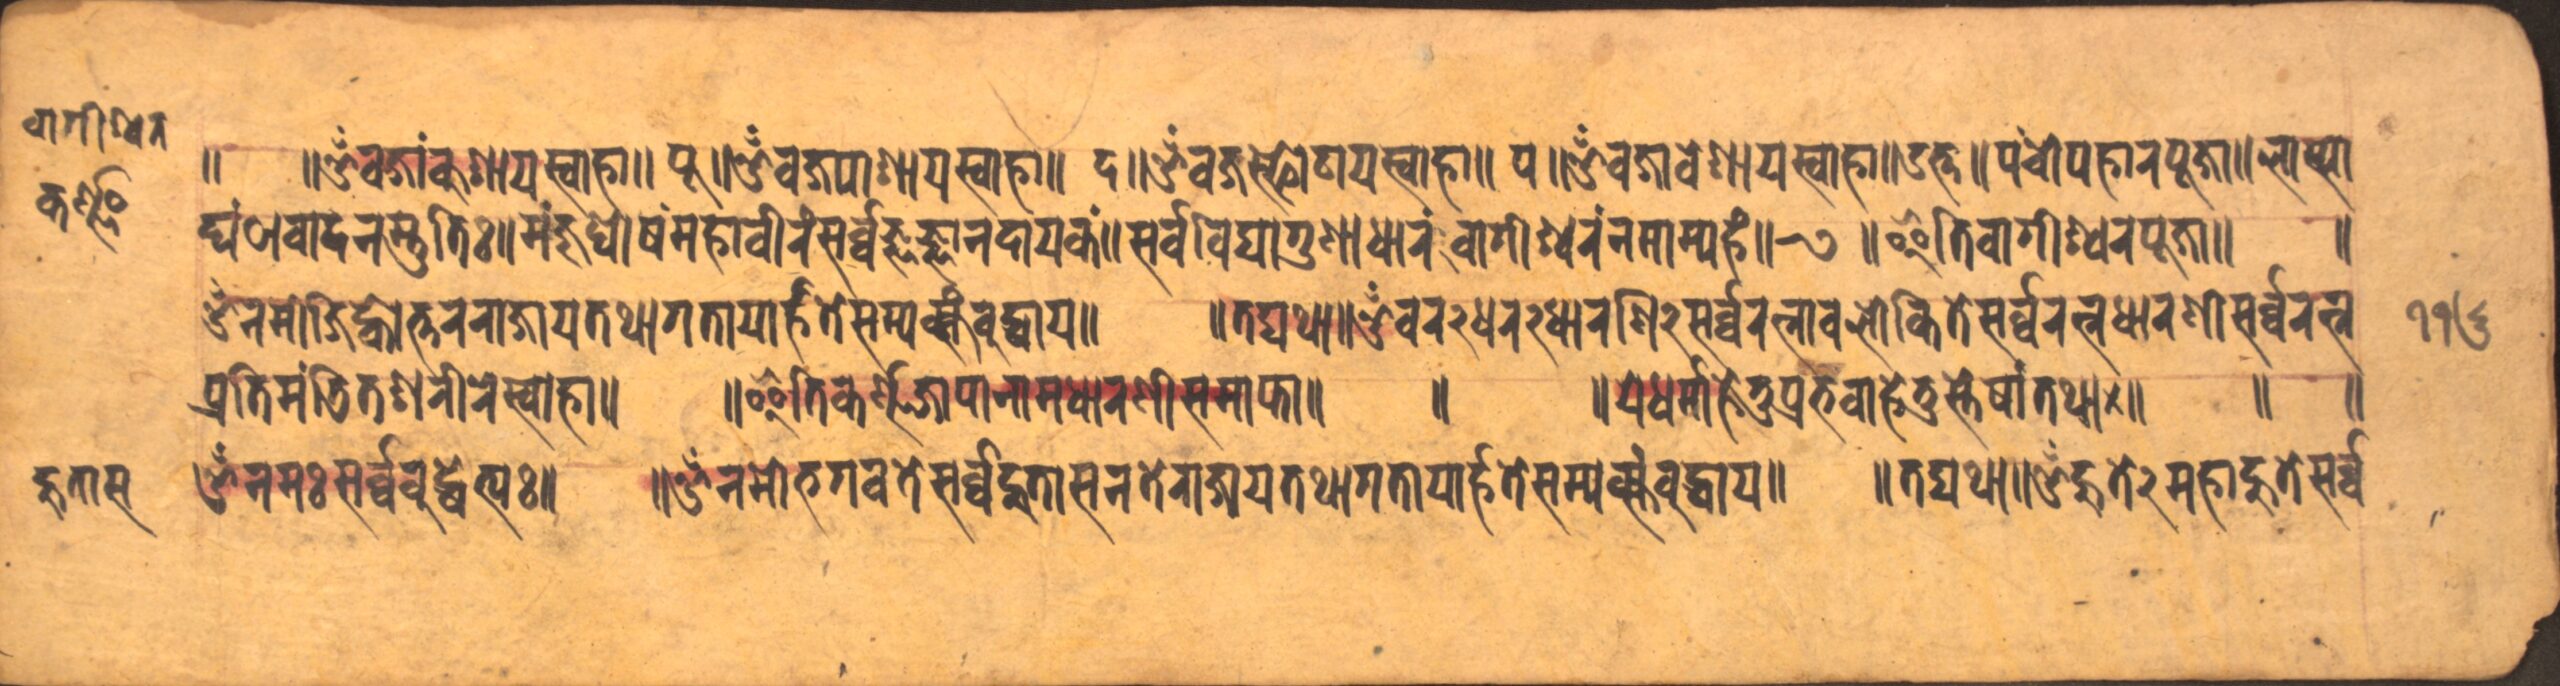 वागीश्वर
कर्ण्ण
॥ ॥ॐवज्रांकुशायस्वाहा॥ पू॥ॐवज्रपाशायस्वाहा॥ द॥ॐवज्रस्फोटायस्वाहा॥ प॥ॐवज्रावेशायस्वाहा॥उत्त॥पंचोपहारपूजा॥लास्या
घंटावादनस्तुतिः॥मंजुघोषंमहावीरंसर्व्वज्ञज्ञानदायकं॥सर्वविद्यागुणाधारंवागीश्वरंनमाम्यहं॥ ॥इतिवागीश्वरपूजा॥ ॥
ॐनमोजिह्वोत्तरराजायतथागतायार्हतेसम्यक्संबुद्धाय॥ ॥तद्यथा॥ॐवर२धर२धारणि२सर्व्वरत्नावलोकितेसर्व्वरत्नधारणीसर्व्वरत्न
प्रतिमंडितशरीरेस्वाहा॥ ॥इतिकर्ण्णजापानामधारणीसमाप्ता॥ ॥ ॥येधर्माहेतुप्रभवाहेतुस्तेषांतथा×॥ ॥ ॥
हुतास ॐनमःसर्व्वबुद्धेभ्यः॥ ॥ॐनमोभगवतेसर्व्वहुतासनतेराजायतथागतायार्हतेसम्यक्संबुद्धाय॥ ॥तद्यथा॥ॐहुते२महाहुतेसर्व्व